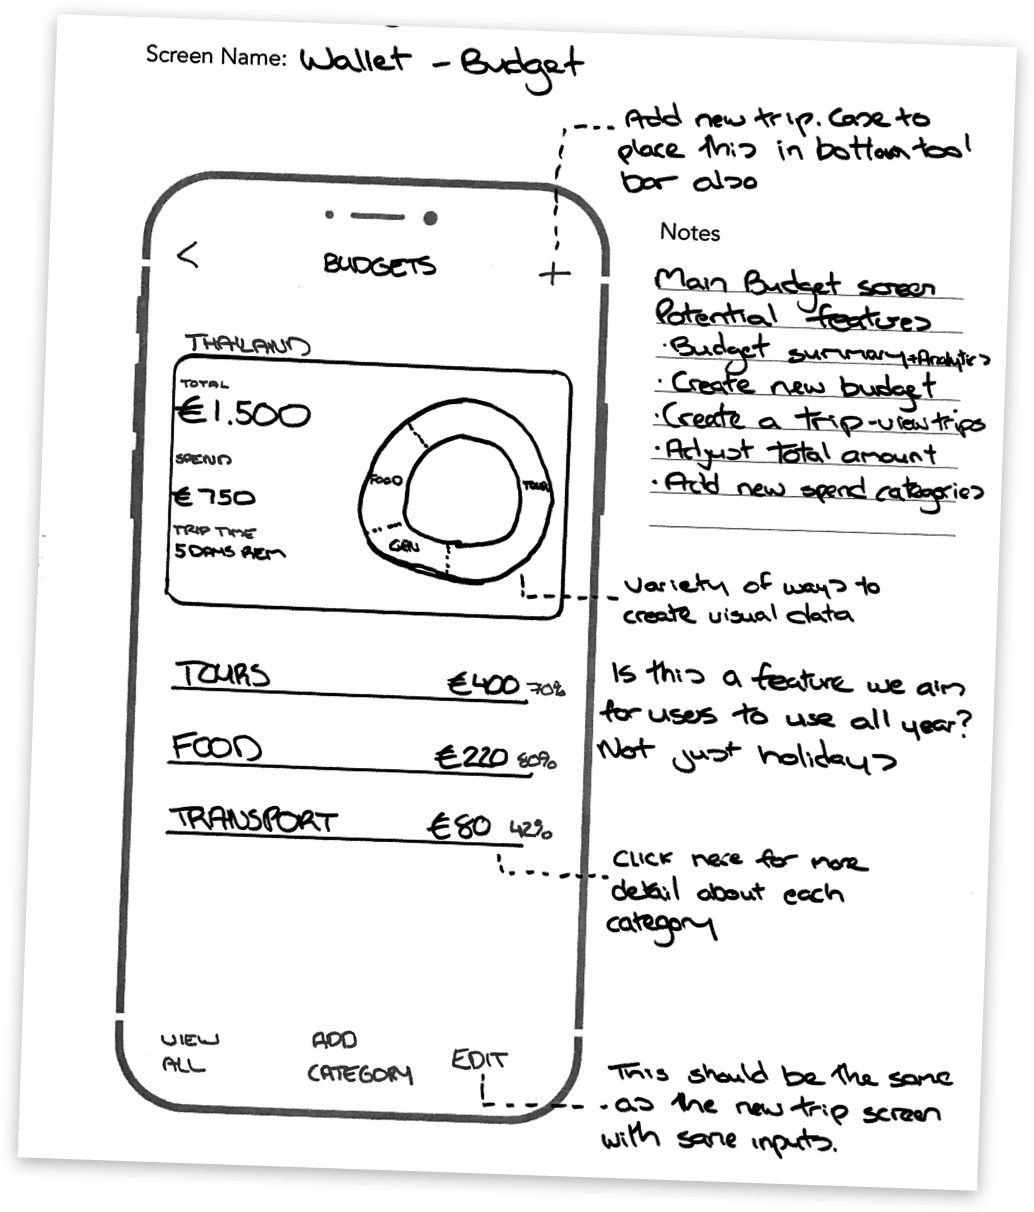 Screen Name: Wallet - Budget
Add new trip. Case to
place this in bottom tool
bar also
<
BUDGETS
+
THAILAND
TOTAL
€1.500
SPEND
€750
TRIP TIME
5 DAYS REM
FOOD
TOUR
GEN
TOURS €400 70%
FOOD €220 80%
TRANSPORT €80 42%
VIEW
ALL
ADD
CATEGORY
EDIT
Notes
Main Budget screen
Potential features
· Budget summary + Analytics
· Create new budget
· Create a trip - view trips
· Adjust total amount
· Add new spend categories
Variety of ways to
create visual data
Is this a feature we aim
for uses to use all year?
Not just holidays
CLICK here for more
detail about each
category
This should be the same
as the new trip screen
with same inputs.